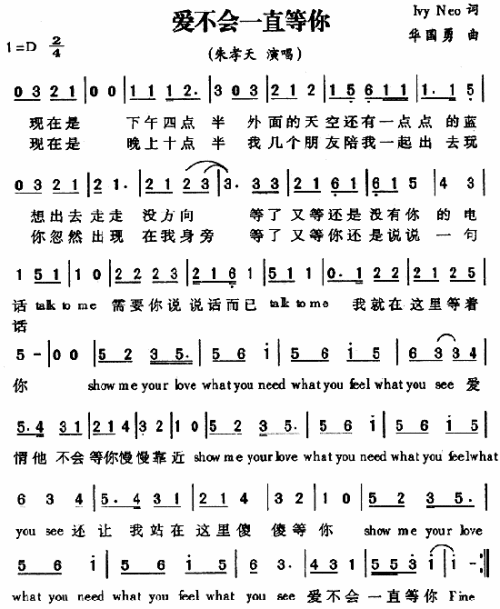 爱不会一直等你
Ivy Neo 词
1=D 2/4
华国勇 曲
(朱孝天 演唱)
0 3 2 1 | 0 0 | 1 1 1 2. | 3 0 3 | 2 1 2 2 | 1 1 6 1 2 | 1. 1 5 |
现在是 下午四点 半 外面的天空还有一点点 的蓝
现在是 晚上十点 半 我几个朋友陪我一起出 去玩
0 3 2 1 | 2 1. | 2 1 2 3 | 2 3. | 3 0 3 | 2 1 2 2 | 6 1 2 1 6 | 6 1 5 | 4 3 |
想出去走走 没方向 等了 又等还是没有你 的 电
你忽然出现 在我身旁 等了 又等你还是说说 一 句
1 5 1 | 1 0 | 2 2 2 3 | 2 1 6 1 | 5 1 1 | 0. 1 2 2 | 2 1 2 5 |
话 talk to me 需要你说 说话而已 talk to me 我就在 这里等着
话
5 - | 0 0 | 5 2 3 5. | 5 6 i | 5 5 i | 5 6 i | 6 3 3 4 |
你 show me your love what you need what you feel what you see 爱
5. 4 3 1 | 2 1 4 | 3 2 | 1 0 | 5 2 3 5. | 5 6 i | 5 6 i | 5 6 i |
情他 不会 等你慢慢靠近 show me your love what you need what you feel what
6 3 4 | 5. 4 3 1 | 2 1 4 | 3 2 | 1 0 | 5 2 3 5. |
you see 还让 我站在 这里傻 傻等 你 show me your love
5 6 i | 5 5 i | 5 6 i | 6 3 . | 4 3 1 | 5 5 3 i | i | i - :‖
what you need what you feel what you see 爱不会 一直等你 Fine